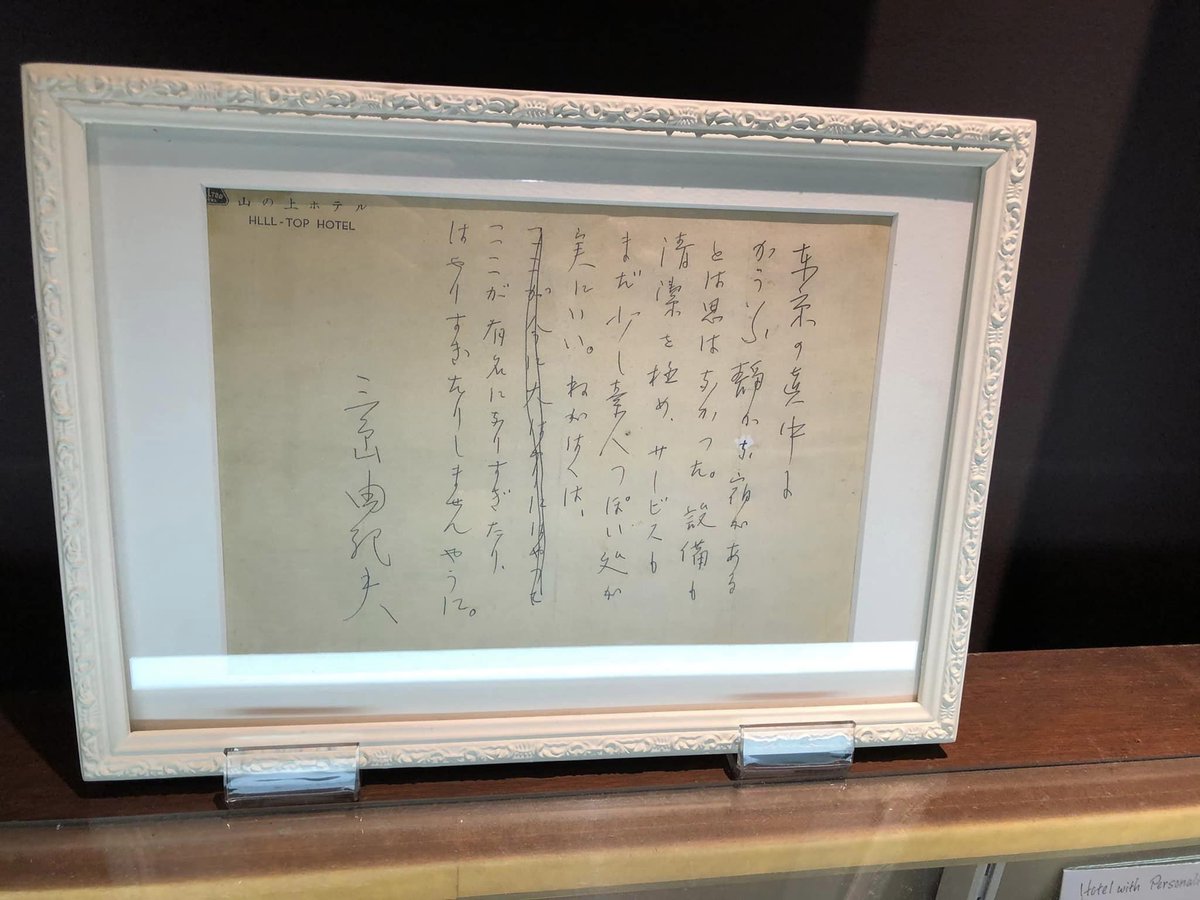 山の上ホテル
HLLL-TOP HOTEL
東京の眞中に
かういふ静かな宿がある
とは思はなかつた。設備も
清潔を極め、サービスも
まだ少し素人つぽい処が
実にいい。ねがはくは、
ここがへんに大はやりに
ここが有名になりすぎたり、
はやりすぎたりしませんやうに。
三島由紀夫
Hotel with Personali